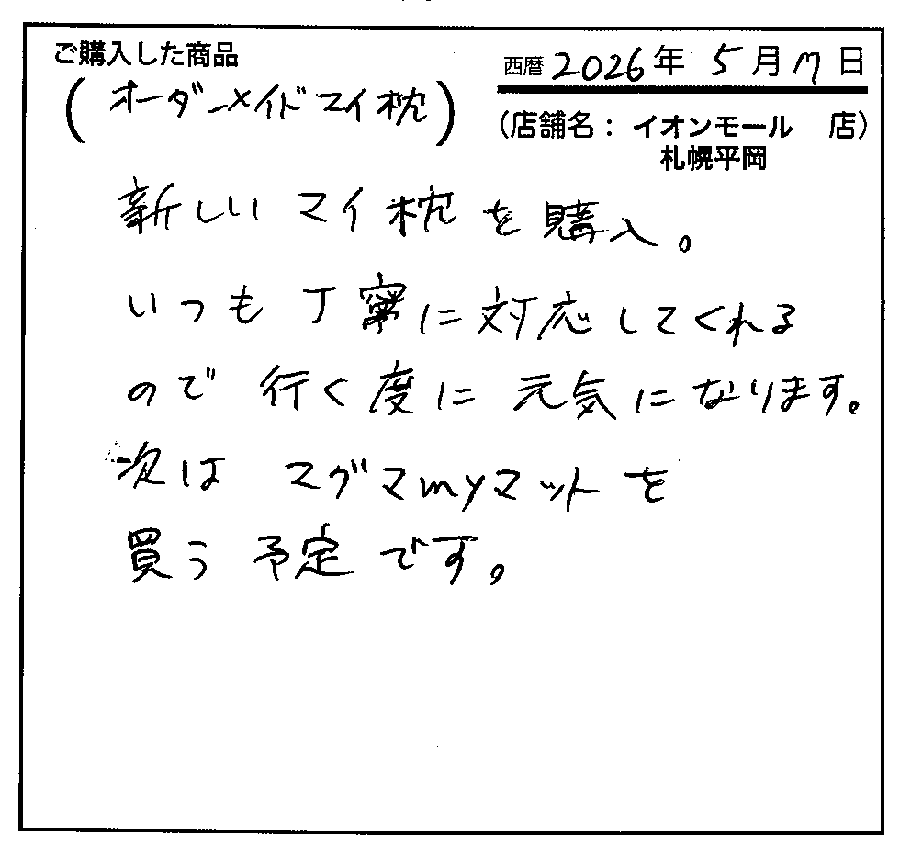 ご購入した商品
(オーダーメイドマイ枕)
西暦 2026年 5月 7日
(店舗名：イオンモール 店)
札幌平岡
新しいマイ枕を購入。
いつも丁寧に対応してくれる
ので行く度に元気になります。
次は マグマmyマットを
買う予定です。